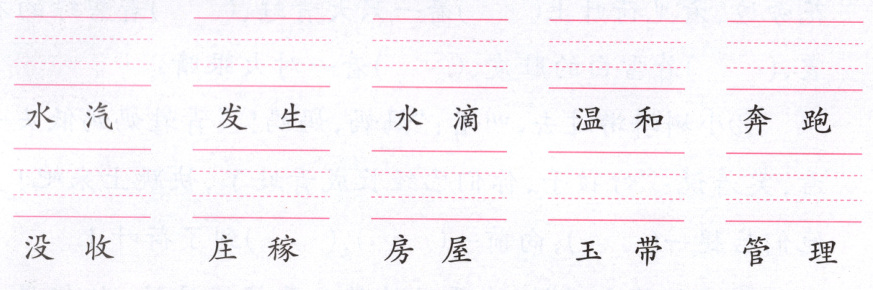 水汽 发生 水滴 温和 奔跑
没收 庄稼 房屋 玉带 管理